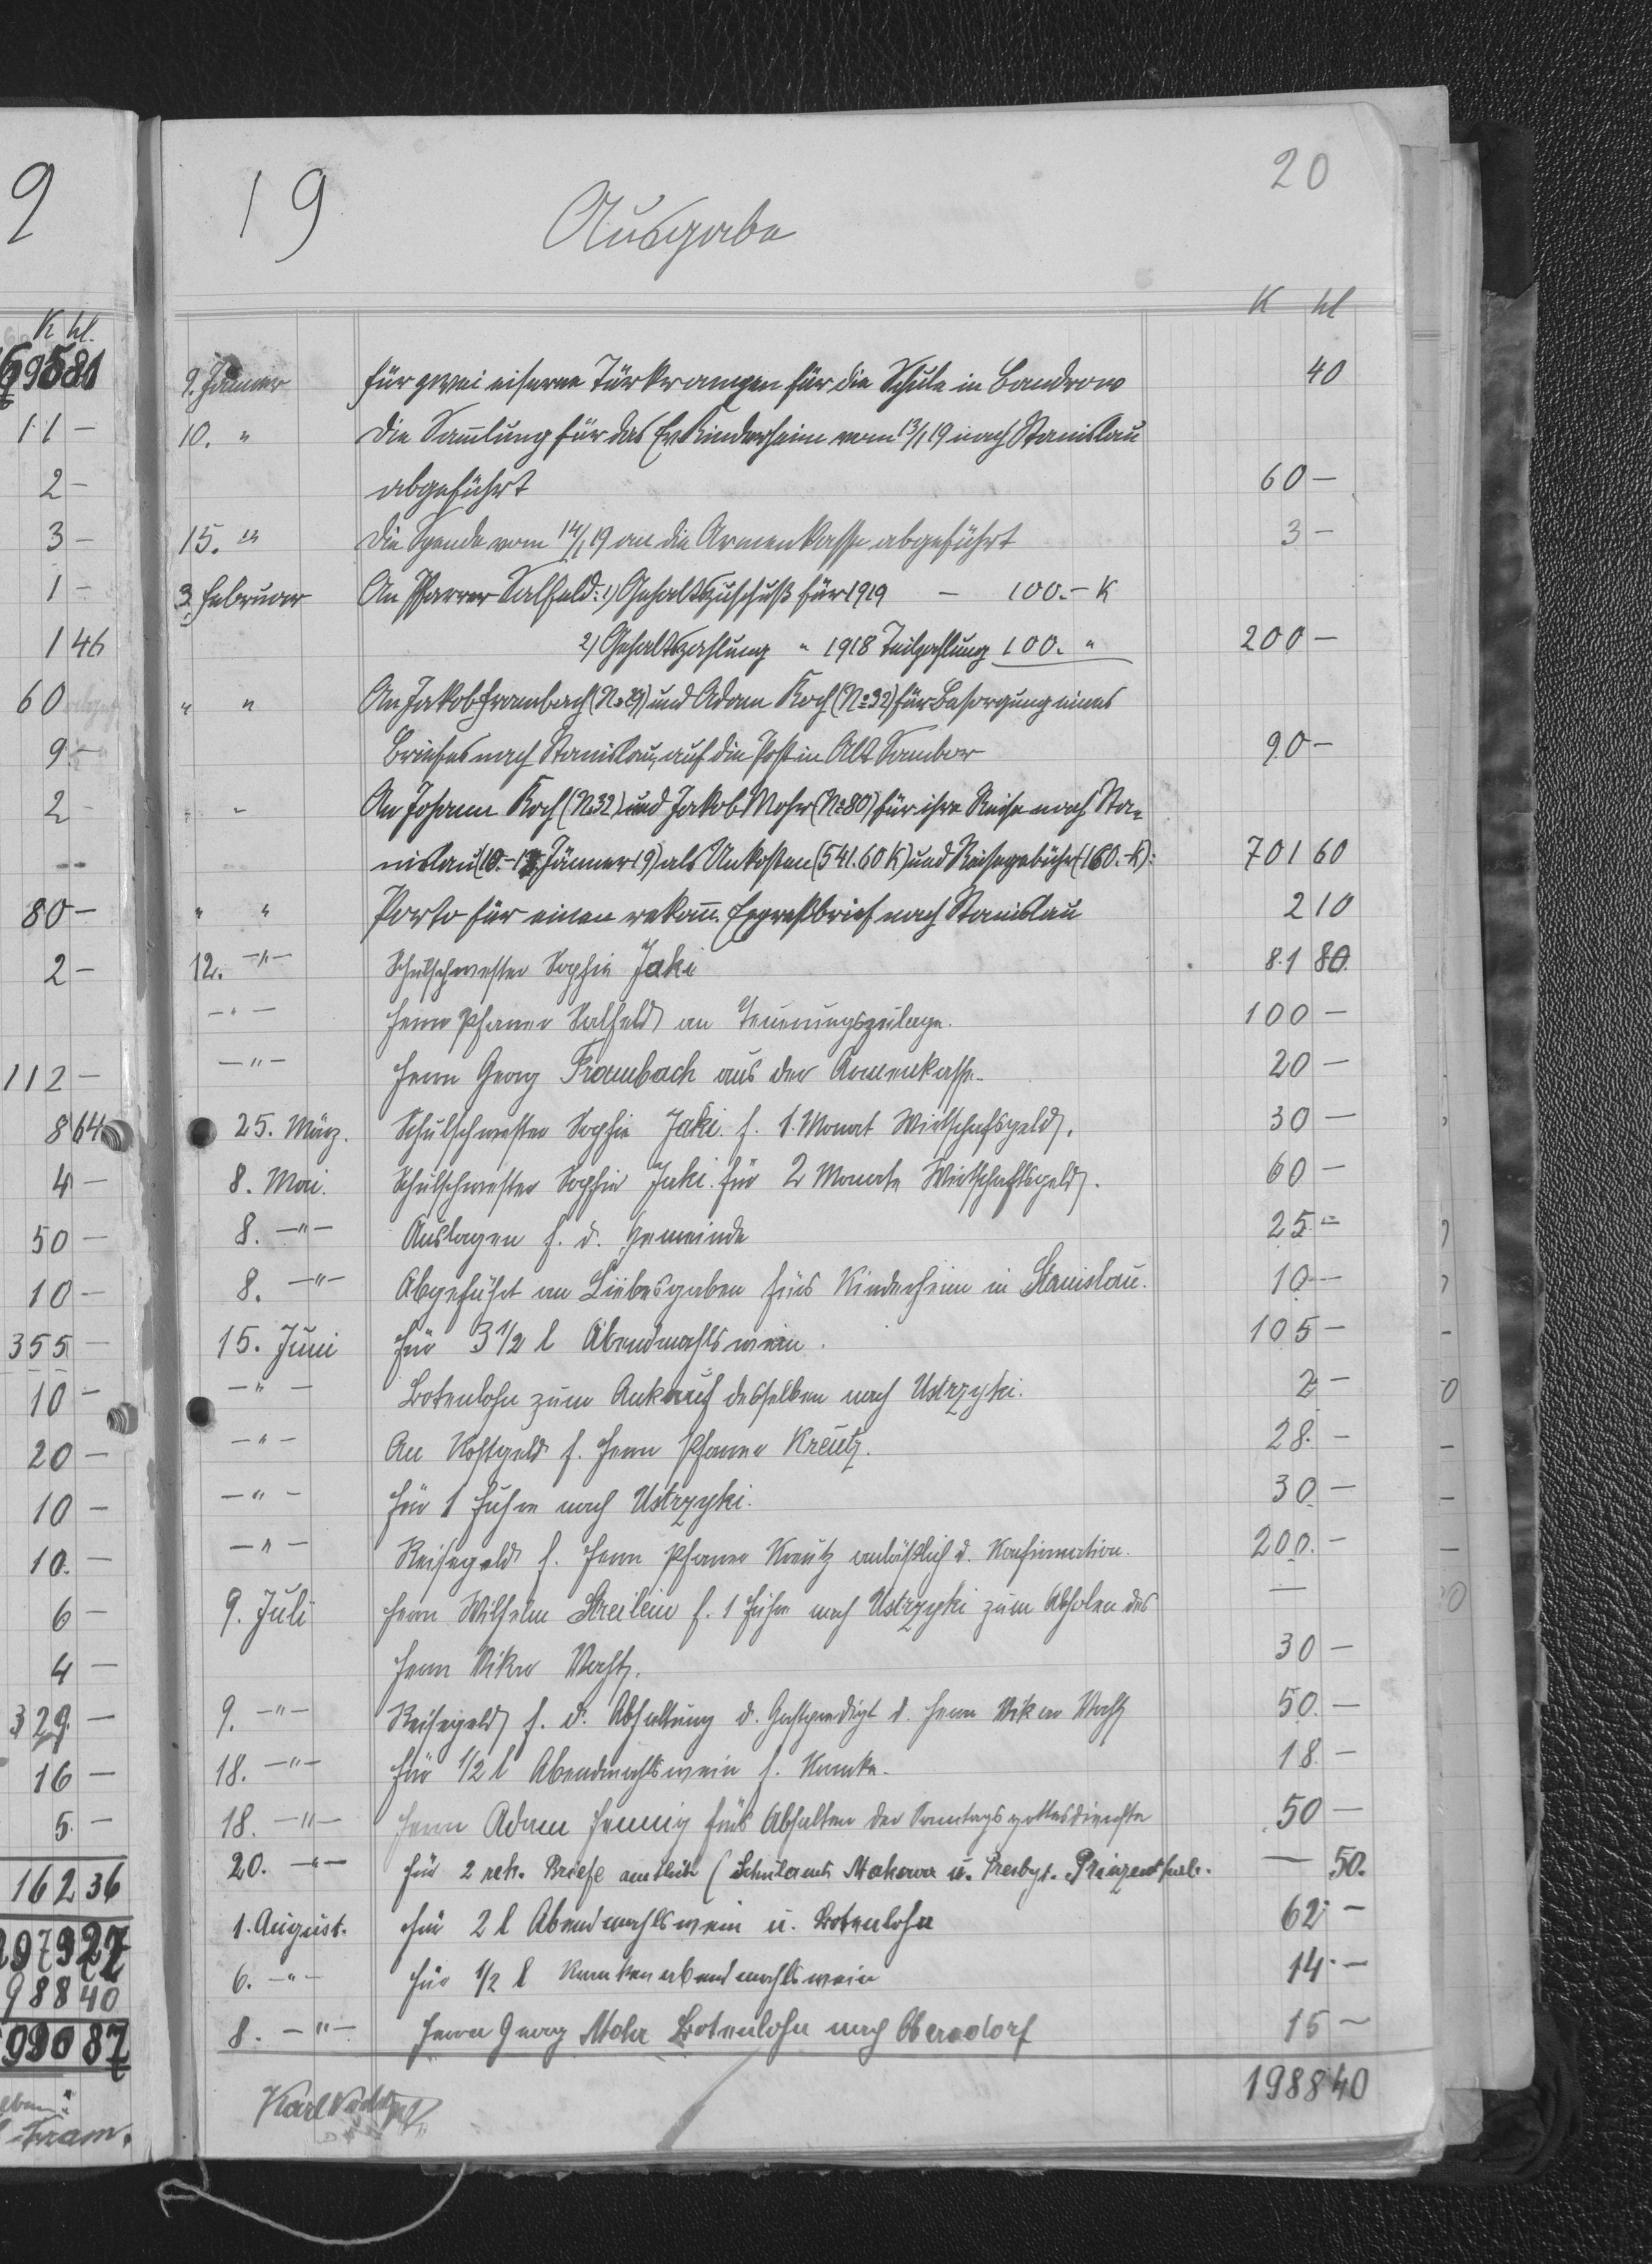 9
K hl.
69581
11 –
2 –
3 –
1 –
1 46
60
9 –
2 –
--
80 –
2 –
112 –
8 64
4 –
50 –
10 –
355 –
10 –
20 –
10 –
10. –
6 –
4 –
329. –
16 –
5. –
162 36
97927
98840
09087
Fram.
19 20
Ausgabe
K hl
9. Jänner für zwei eiserne Türkrampen für die Schule in Bandrow 40
10. " Die Sam̄lung für das Ev. Kinderheim vom 13/1 19 nach Stanislau
abgeführt 60 –
15. " Die Spende vom 14/1 19 an die Armenkasse abgeführt 3 –
3. Februar An Pfarrer Salfeld: 1) Gehaltszuschuß für 1919 – 100.– K
2) Gehaltszahlung " 1918 Teilzahlung 100. " 200 –
" " An Jakob Frambach (No 29) und Adam Koch (No 32) für Besorgung eines
Briefes nach Stanislau, auf die Post in Alt Sambor 90 –
" " An Johann Koch (No 32) und Jakob Mohr (No 80) für ihre Reise nach Sta-
nislau (10.–17. Jänner 19) als Unkosten (541.60 K) und Reisegebühr (160.– K): 701 60
" " Porto für einen rekom̄. Expreßbrief nach Stanislau 2 10
12. –"– Schulschwester Sophie Jaki 81 80.
–"– Herrn Pfarrer Salfeld an Teuerungszulage. 100 –
–"– Herrn Georg Frambach aus der Armenkasse. 20 –
25. März. Schulschwester Sophie Jaki. f. 1. Monat Wirtschaftsgeld. 30 –
8. Mai. Schulschwester Sophie Jaki. für 2 Monate Wirtschaftsgeld. 60 –
8. –"– Auslagen f. d. Gemeinde 25 –
8. –"– Abgeführt an Liebesgaben fürs Kinderheim in Stanislau. 10 –
15. Juni für 3 1/2 l Abendmahlswein. 105 –
–"– Botenlohn zum Ankauf desselben nach Ustrzyki. 2 –
–"– An Kostgeld f. Herrn Pfarrer Kreutz. 28. –
–"– für 1 Fuhre nach Ustrzyki. 30 –
–"– Reisegeld f. Herrn Pfarrer Kreutz anläßlich d. Konfirmation. 200. –
9. Juli Herrn Wilhelm Streilein f. 1 Fuhre nach Ustrzyki zum Abholen des —
Herrn Vikar 30 –
9. –"– Reisegeld f. d. Abhaltung d. Gastpredigt d. Herrn Vikar 50. –
18. –"– für 1/2 l Abendmahlswein f. Kranke. 18. –
18. –"– Herrn Adam Hennig fürs Abhalten der Sonntagsgottesdienste 50 –
20. –"– für 2 rek. Briefe amtlich (Schulamt Makowa u. Presbyt. — 50.
1. August. für 2 l Abendmahlswein u. Botenlohn 62 –
6. –"– für 1/2 l Krankenabendmahlswein 14. –
8. –"– Herrn Georg Mohr Botenlohn nach Obersdorf 15 –
Karl 1988 40